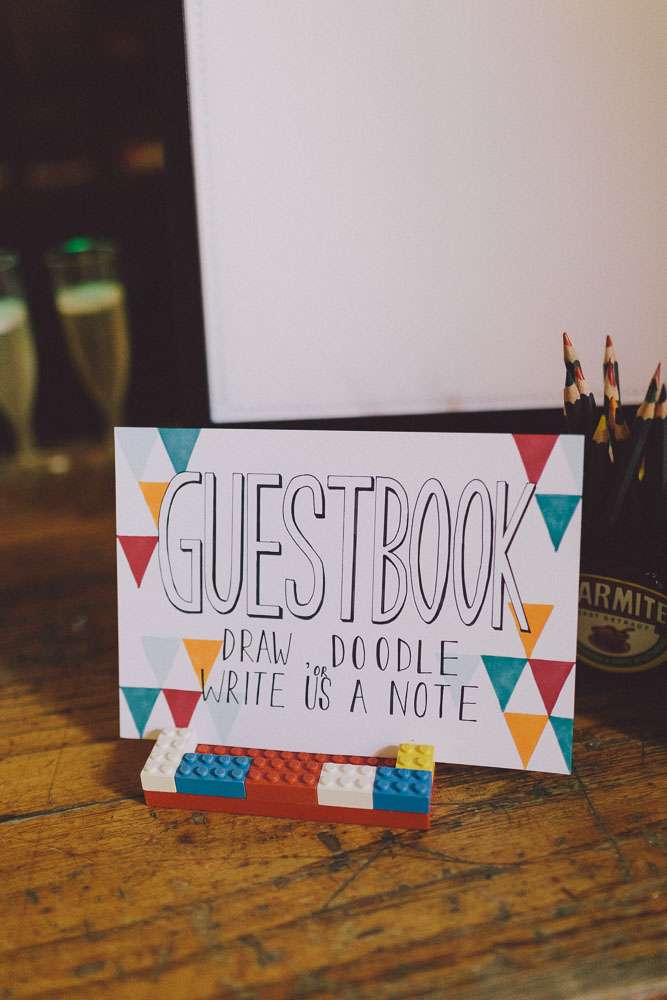 GUESTBOOK
DRAW, DOODLE
OR
WRITE US A NOTE
ARMITE